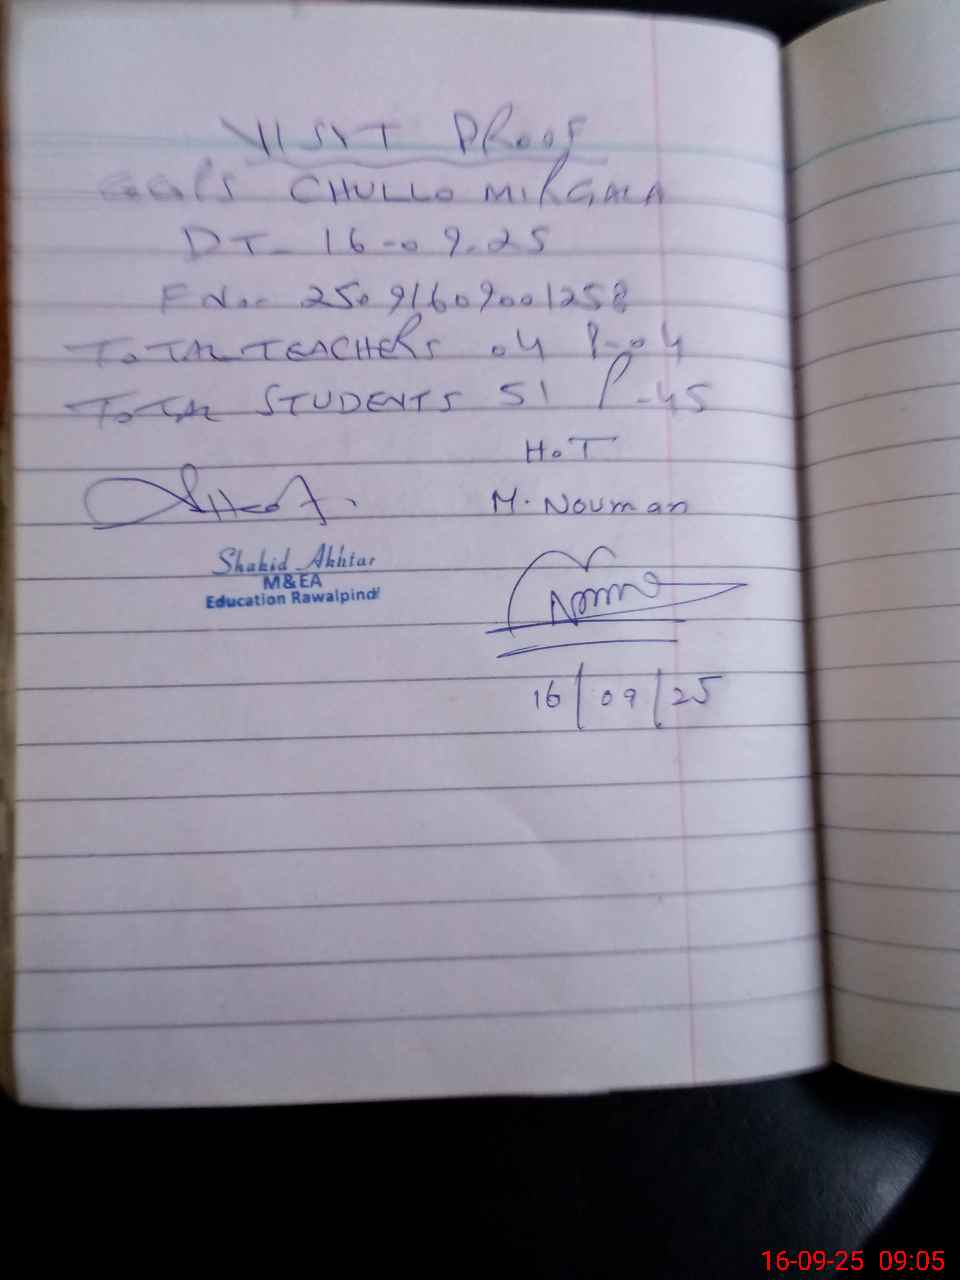 VISIT PROOF
GGPS CHULLO MIRGALA
DT- 16-09-25
F No.- 25091609001258
TOTAL TEACHERS 04 P-04
TOTAL STUDENTS 51 P-45
H.T
M. Nouman
Shahid Akhtar
M&EA
Education Rawalpindi
16/09/25
16-09-25 09:05